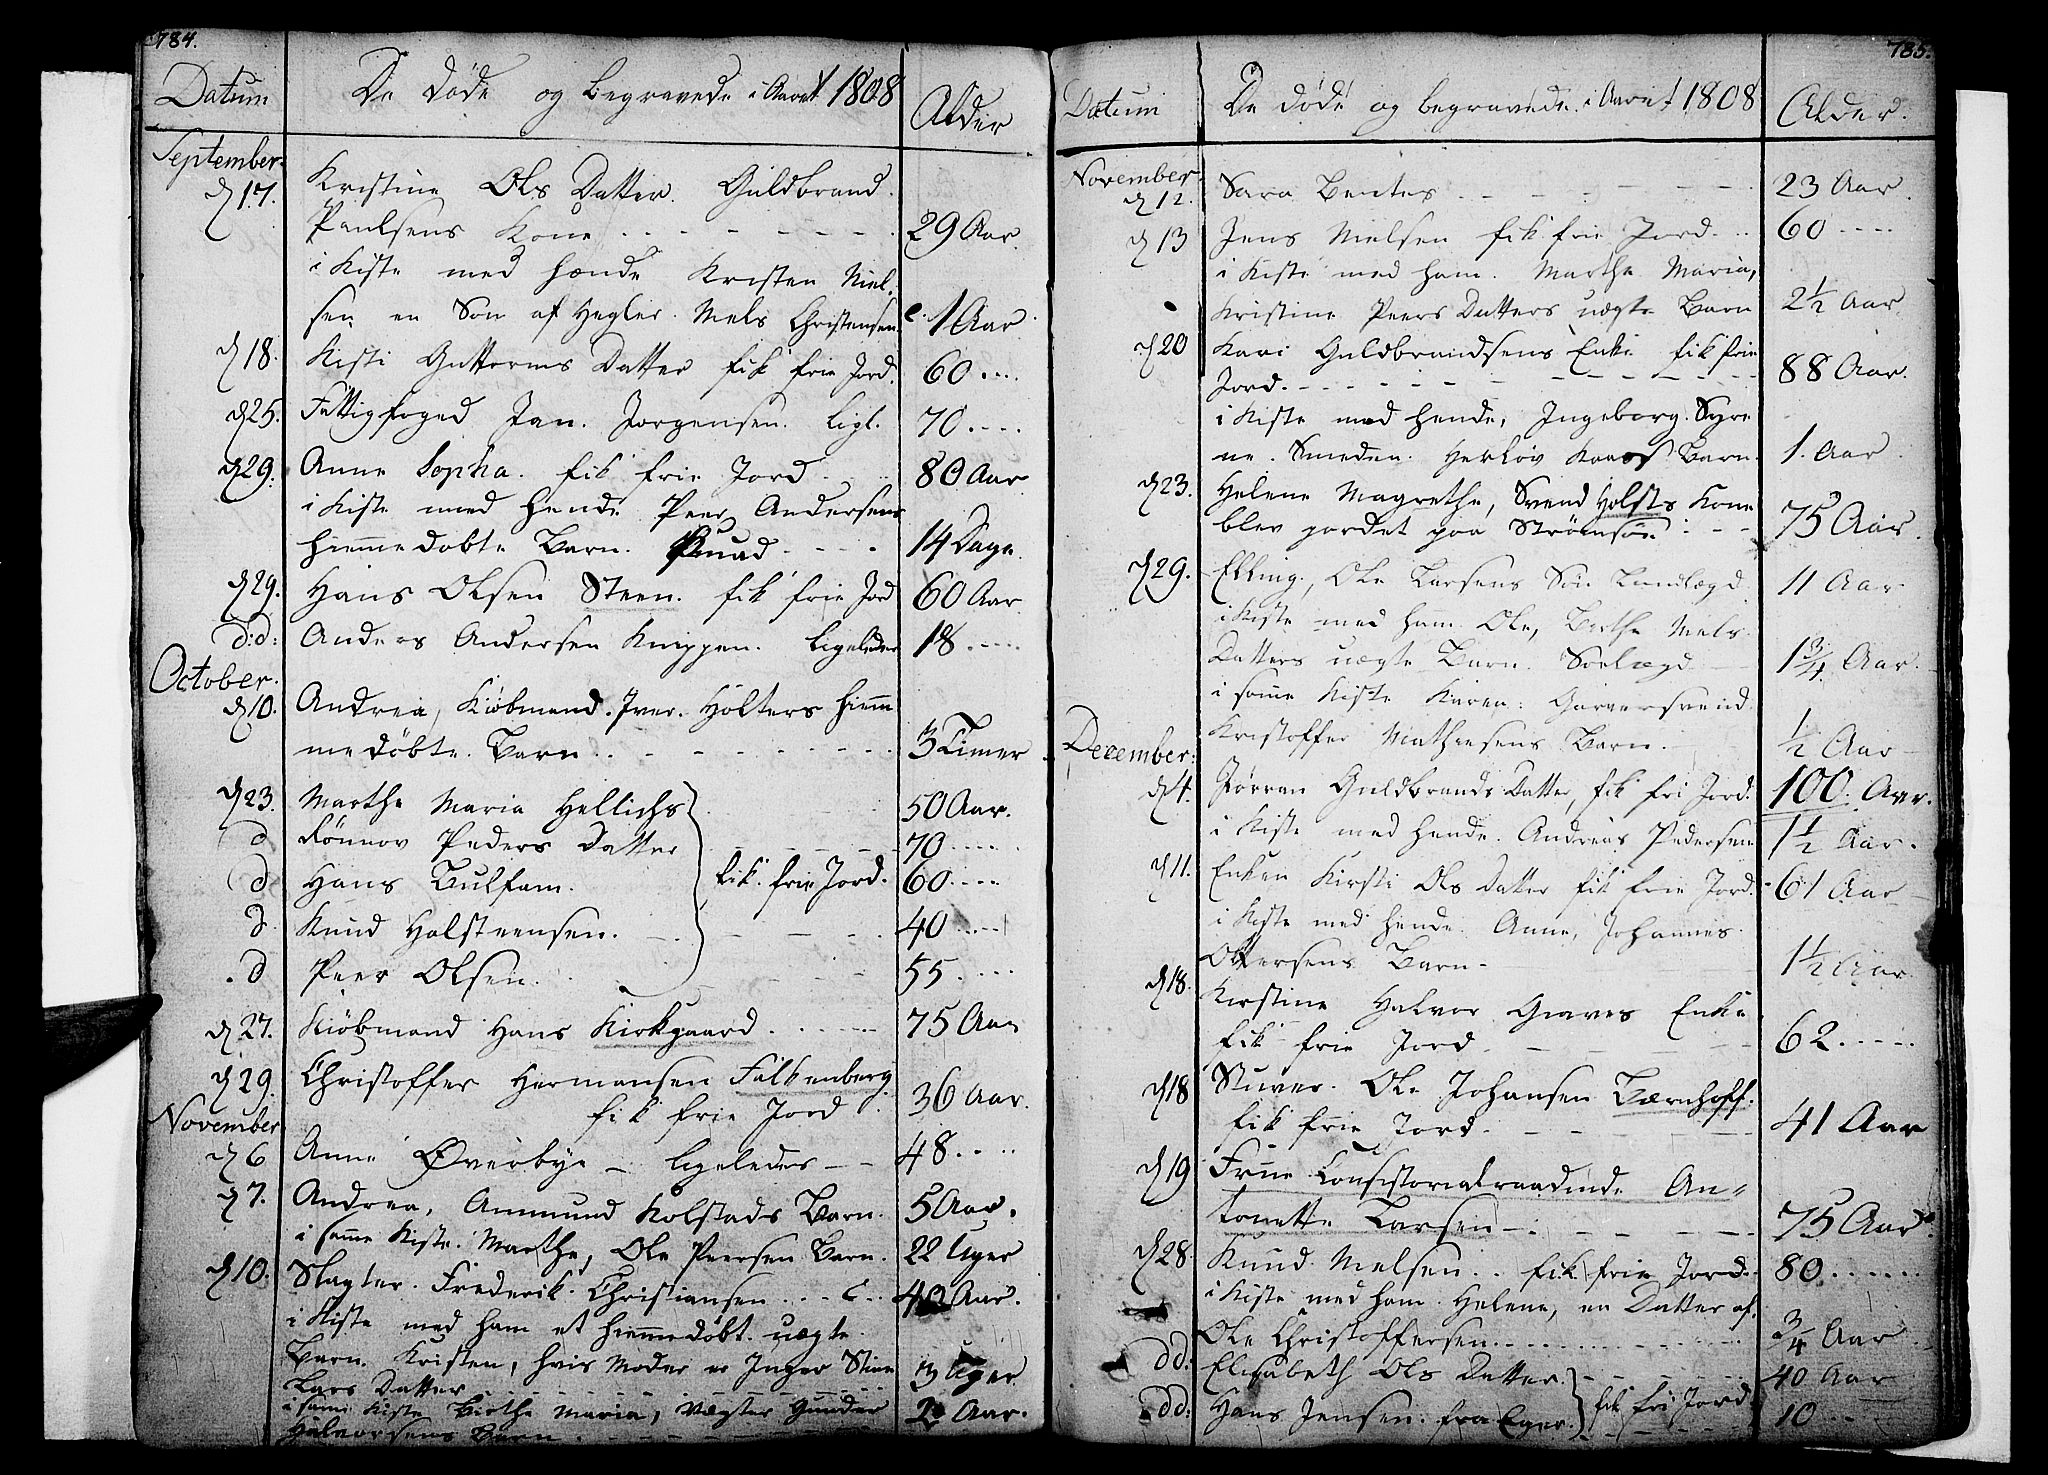 784.
Datum
De døde og begravede i Aaret 1808
Alder
September.
d 17. Kristine Ols Datter. Guldbrand
Paulsens Kone 29 Aar.
i Kiste med hende Kristen Niel-
sen en Søn af Hegler. Niels Christensen. 1 Aar
d 18. Kisti Guttorms Datter fik frie Jord. 60
d 25. Fattigfoged Jan. Jorgensen. ligl. 70
d 29. Anne Sopha. fik frie Jord 80 Aar
i Kiste med hende Peer Andersens
hiemmedøbte Barn. 14 Dage.
d 29. Hans Olsen Steen. fik frie Jord 60 Aar
d:d: Anders Andersen Knippen. ligeledes 18
October.
d 10. Andrea, Kiöbmand. Iver. Holters hiem
medöbte. Barn 3 Timer
d 23. Marthe Maria Hellichs 50 Aar.
d Rönnov Peders Datter 70
d Hans Bulfam. fik. frie Jord. 60
d. Knud Holsteensen. 40
d Peer Olsen. 55
d 27. Kiöbmand Hans Kirkgaard 75 Aar
d 29. Christoffer Hermansen Falkenberg.
fik frie Jord 36 Aar.
November
d 6 Anne Øverbye ligeledes 48
d 7. Andrea, Ammund Kolstads Barn. 5 Aar.
i samme Kiste. Marthe, Ole Peersen Barn. 22 Uger
d 10. Slagter. Frederik. Christiansen 40 Aar.
i Kiste med ham et hiemmedøbt. uægte
Barn. Kristen, hvis Moder er Inger Stine
Lars Datter 3 Uger
i samme Kiste Birthe Maria, Vægter Gunder
Halvorsens Barn 2 Aar.
785.
Datum
De døde og begravede i Aaret 1808
Alder.
November.
d 12. Sara Bentes 23 Aar
d 13 Jens Nielsen fik frie Jord 60
i Kiste med ham. Marthe Maria,
Kristine Peers Datters uægte Barn 2½ Aar
d 20 Kari Guldbrandsens Enke fik frie
Jord. 88 Aar.
i Kiste med hende, Ingeborg. Syre
ne. Smeden. Herlöv Kaass Barn. 1. Aar
d 23. Helene Magrethe, Svend Holsts Kone
blev jordet paa Strömsöe 75 Aar.
d 29. Elling, Ole Larsens Sön Lundlægd 11 Aar
i Kiste med ham Ole, Berthe Niels
Datters uægte Barn. Soelægd 1¾ Aar.
i same Kiste Karen. Garversvend
Kristoffer Mathiesens Barn. ½ Aar
December.
d 4. Jörran Guldbrands Datter, fik fri Jord. 100. Aar.
i Kiste med hende. Andreas Pedersen 1½ Aar.
d 11. Enken Kirsti Ols Datter fik frie Jord. 61 Aar
i Kiste med hende. Anne, Johannes
Ottersens Barn 1½ Aar.
d 18. Kirstine Halvor Graves Enke
fik frie Jord 62
d 18 Stuver. Ole Johansen Bærnhoff.
fik frie Jord. 41 Aar
d 19 Frue Consistorialraadinde An-
tonette Larsen 75 Aar
d 28 Knud Nielsen fik frie Jord. 80
i Kiste med ham. Helene, en Datter af
Ole Christoffersen ¾ Aar
dd. Elisabeth Ols Datter. 40 Aar
dd: Hans Jensen. fra Eger. fik fri Jord 10